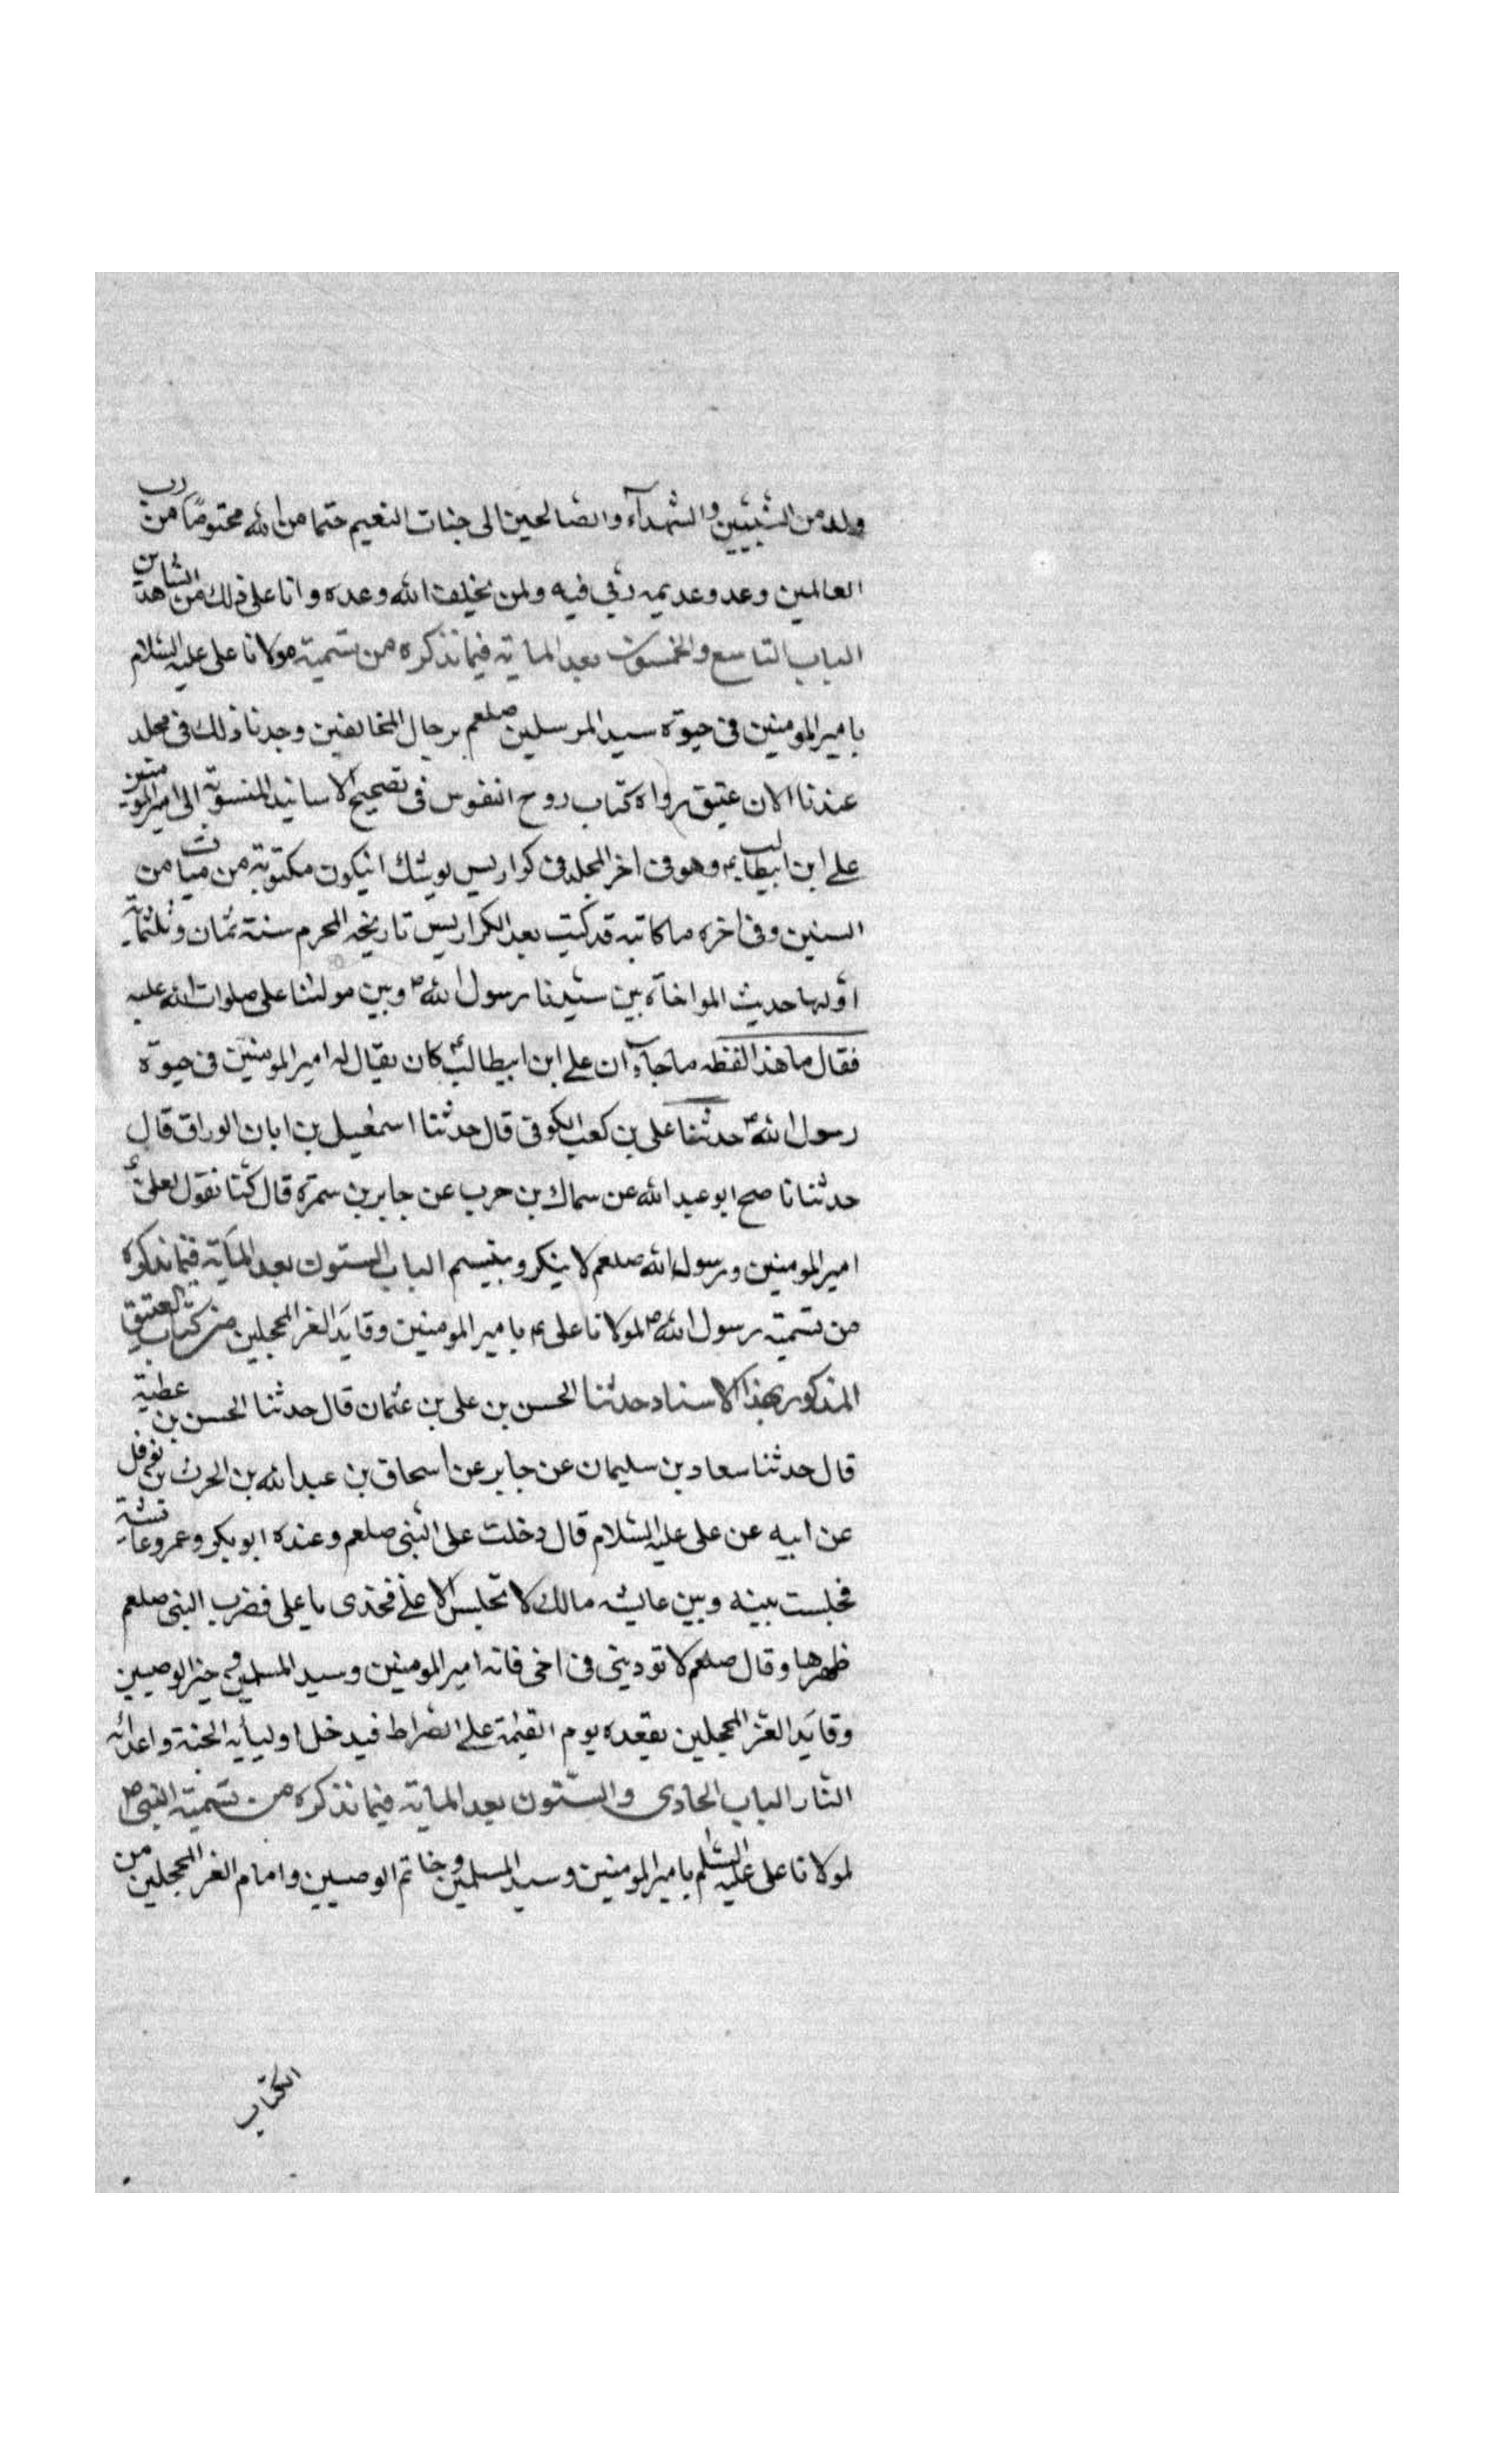 ولد من النبيين والشهدآء والصالحين الى جنات النعيم حتما من الله محتومًا من رب
العالمين وعد وعديه ربي فيه ولن يخلف الله وعده وانا على ذلك من الشاهدين
الباب التاسع والخمسون بعد الماية فيما نذكره من تسمية مولانا على عليه السلام
بامير المومنين فى حيوة سيد المرسلين صلعم برجال المخالفين وجدنا ذلك فى مجلد
عندنا الان عتيق رواه كتاب روح النفوس فى تصحيح الاسانيد المنسوبة الى امير المومنين
على ابن ابيطالب ع وهو فى اخر المجلد فى كواريس يوشك انيكون مكتوبة من ميات من
السنين وفى اخره ما كاتبه قد كتب بعد الكراريس تاريخه المحرم سنة ثمان وثلثماية
اولها حديث المواخاة بين سيدنا رسول الله ص وبين مولينا على صلوات الله عليه
فقال ما هذا لفظه ما جاء ان على ابن ابيطالب ع كان يقال له امير المومنين فى حيوة
رسول الله ص حدثنا على بن كعب الكوفى قال حدثنا اسمعيل بن ابان الوراق قال
حدثنا ناصح ابو عبد الله عن سماك بن حرب عن جابر بن سمرة قال كنا نقول لعلى ع
امير المومنين ورسول الله صلعم لا ينكر ويتبسم الباب الستون بعد الماية فيما نذكره
من تسمية رسول الله ص لمولانا على ع بامير المومنين وقايد الغر المحجلين من كتاب العتيق
المذكور بهذا الاسناد حدثنا الحسن بن على بن عثمان قال حدثنا الحسن بن عطية
قال حدثنا سعاد بن سليمان عن جابر عن اسحاق بن عبد الله بن الحرث بن نوفل
عن ابيه عن على عليه السلام قال دخلت على النبى صلعم وعنده ابوبكر وعمر وعايشة
فجلست بينه وبين عايشه مالك لا تجلس الا على فخذى يا على فضرب النبى صلعم
ظهرها وقال صلعم لا توديني فى اخى فانه امير المومنين وسيد المسلمين وخير الوصيين
وقايد الغر المحجلين يقعده يوم القيمة على الصراط فيدخل اوليأيه الجنة واعدائه
النار الباب الحادى والستون بعد الماية فيما نذكره من تسمية النبى ص
لمولانا على عليه السلم بامير المومنين وسيد المسلمين وخاتم الوصيين وامام الغر المحجلين من
الكتاب